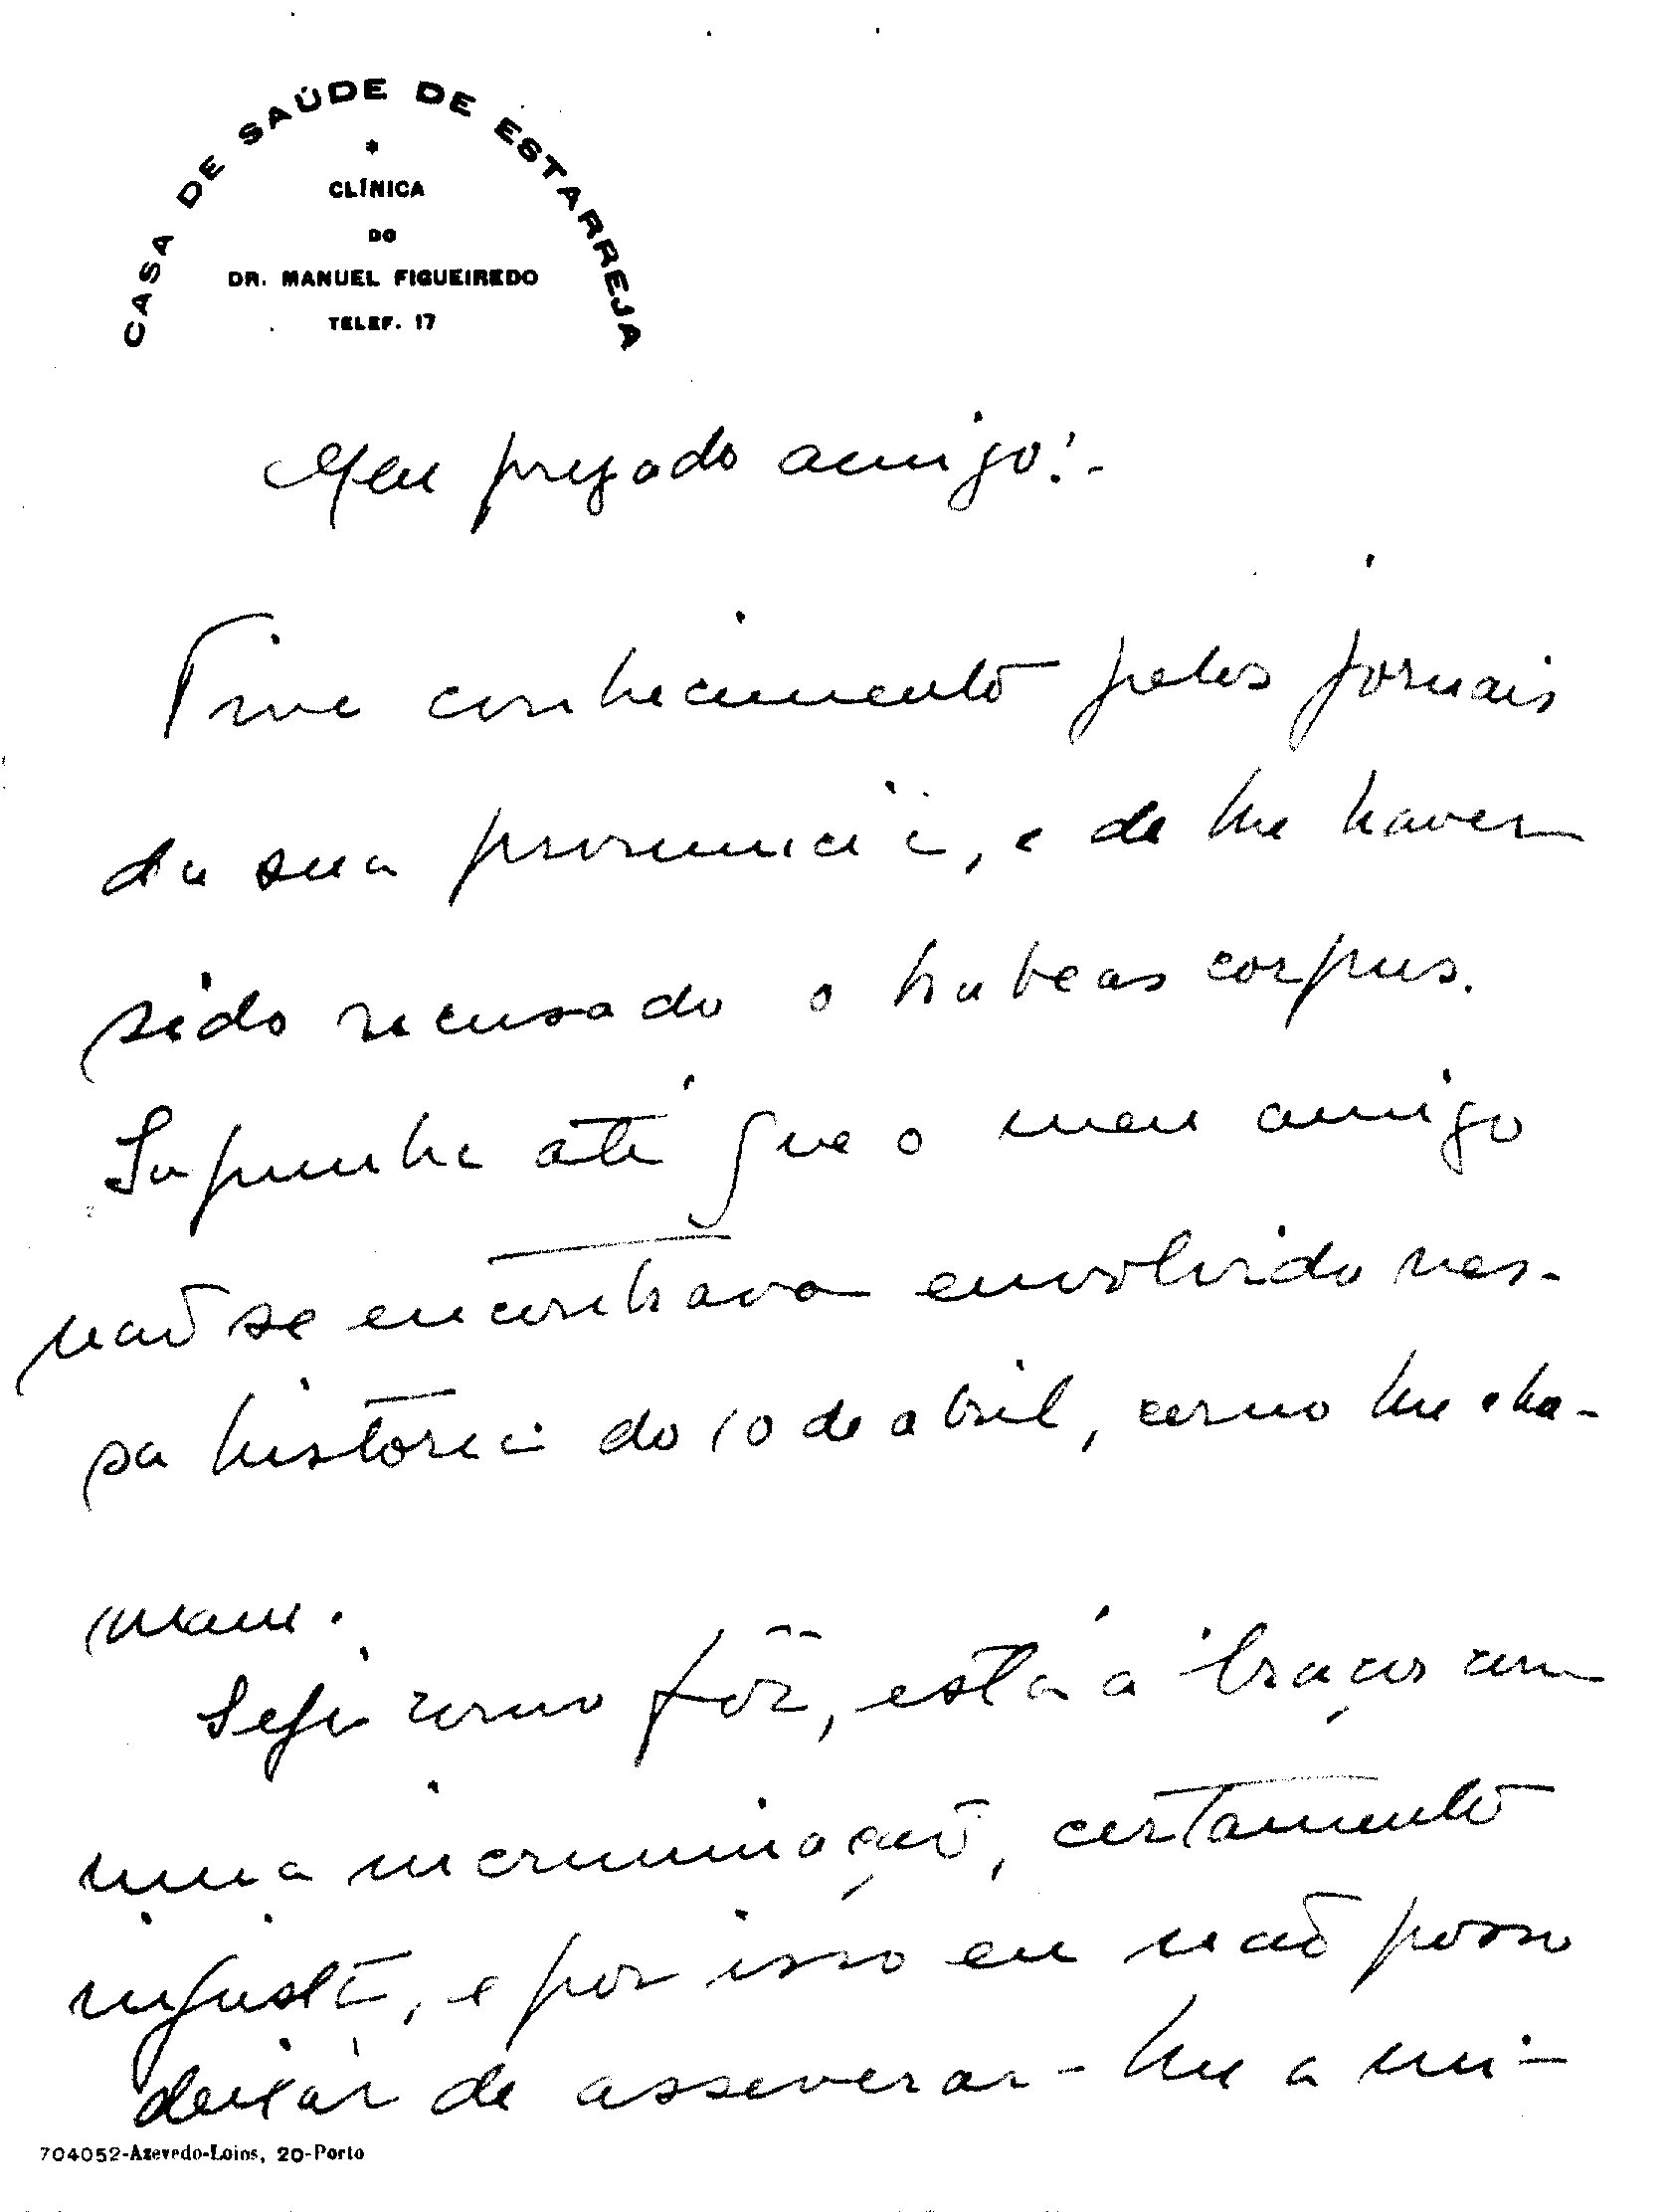 CASA DE SAÚDE DE ESTARREJA
*
CLÍNICA
DO
DR. MANUEL FIGUEIREDO
TELEF. 17
Meu prezado amigo:-
Tive conhecimento pelos jornais
da sua pronuncia, e de lhe haver
sido recusado o habeas corpus.
Supunha até que o meu amigo
não se encontrava envolvido nes-
sa história do 10 de abril, como lhe cha-
mam.
Seja como fôr, está a braços com
uma incriminação, certamente
injusta, e por isso eu não posso
deixar de asseverar-lhe a mi-
704052-Azevedo-Loios, 20-Porto